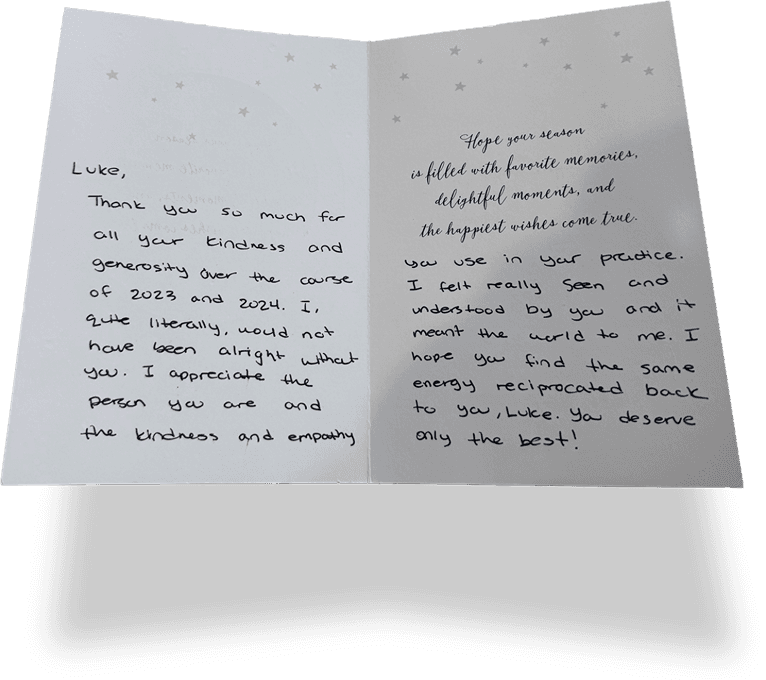 Luke,
Thank you so much for
all your kindness and
generosity over the course
of 2023 and 2024. I,
quite literally, would not
have been alright without
you. I appreciate the
person you are and
the kindness and empathy
Hope your season
is filled with favorite memories,
delightful moments, and
the happiest wishes come true.
you use in your practice.
I felt really seen and
understood by you and it
meant the world to me. I
hope you find the same
energy reciprocated back
to you, Luke. You deserve
only the best!